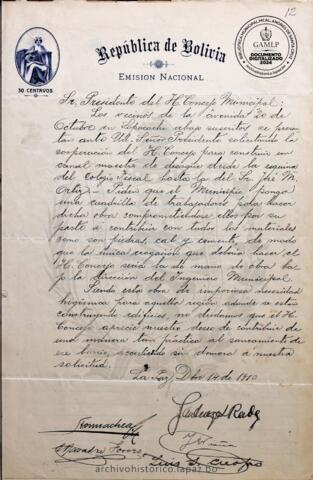 12
República de Bolivia
EMISION NACIONAL
30 CENTAVOS
BIBLIOTECA MUNICIPAL MCAL. ANDRÉS DE SANTA CRUZ
GAMLP
DOCUMENTO
DIGITALIZADO
2024
Sr. Presidente del H. Concejo Municipal:
Los vecinos de la "avenida" 20 de
Octubre en abajo suscritos se presentan
ante Ud. Señor Presidente solicitando la
cooperación del H. Concejo para construir un
canal maestro de desagüe desde la esquina
del Colegio Fiscal hasta la del Sr. José M.
Ortiz. Piden que el Municipio ponga
una cuadrilla de trabajadores para hacer
dicha obra comprometiéndose ellos por su
parte a contribuir con todos los materiales
como son piedras, cal y cemento, de modo
que la única erogación que debería hacer el
H. Concejo sería la de mano de obra bajo
la dirección del Ingeniero Municipal.
Siendo esta obra de imperiosa necesidad
higiénica para aquella región adonde se están
construyendo edificios, no dudamos que el H.
Concejo aprecie nuestro deseo de contribuir de
una manera tan práctica al saneamiento de
ese barrio, accediendo sin demora a nuestra
solicitud.
La Paz, Dbre 14 de 1910
archivohistorico.lapaz.bo